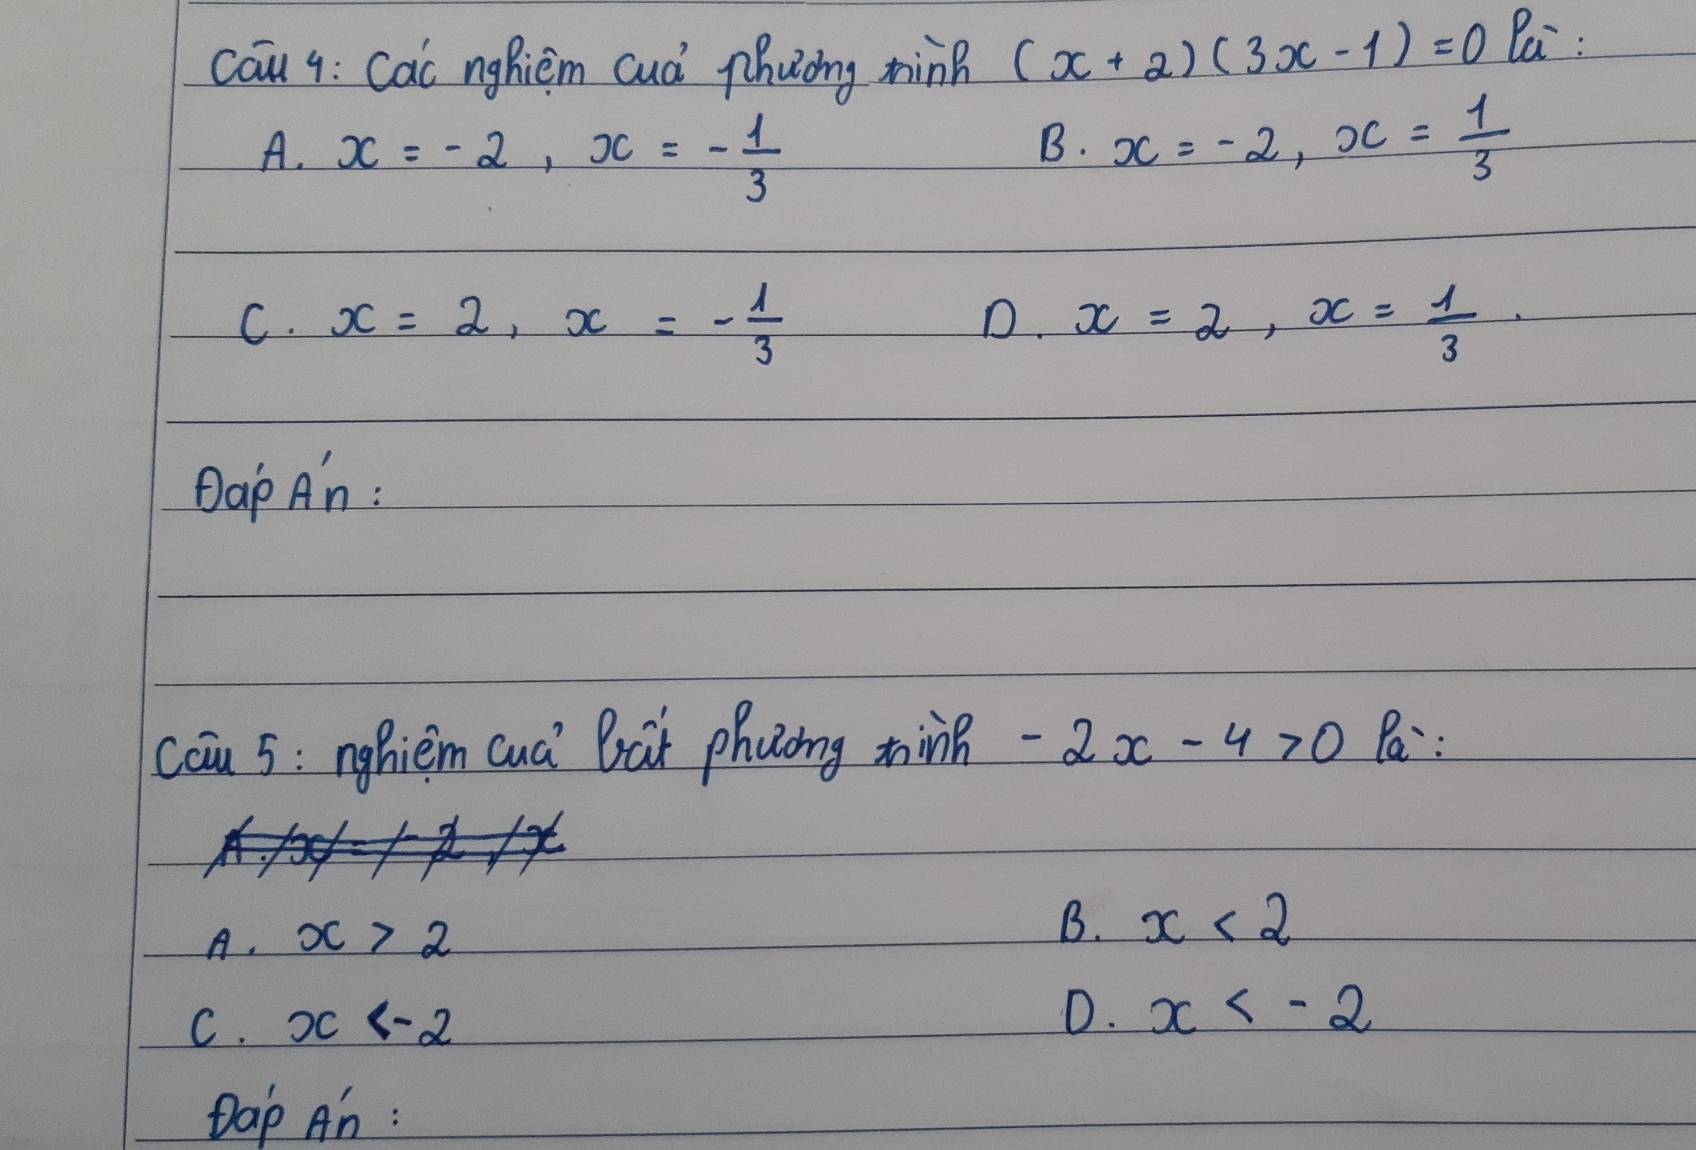 Câu 4: Các nghiệm của phương trình (x + 2)(3x - 1) = 0 là:
A. x = -2, x = -1/3 B. x = -2, x = 1/3
C. x = 2, x = -1/3 D. x = 2, x = 1/3.
Đáp Án:
Câu 5: nghiệm của bất phương trình -2x - 4 > 0 là:
A. x = -2, x
A. x > 2 B. x < 2
C. x < -2 D. x < -2
Đáp Án: